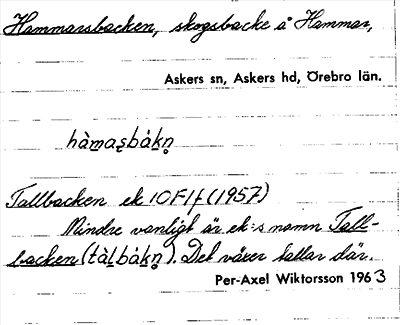 Hammarsbacken, skogsbacke å Hammar,
Askers sn, Askers hd, Örebro län.
hàmas̱bàkn̥
Tallbacken ek 10F1f (1957)
Mindre vanligt är ek:s namn Tall-
backen (tàlbàkn̥). Det växer tallar där.
Per-Axel Wiktorsson 1963